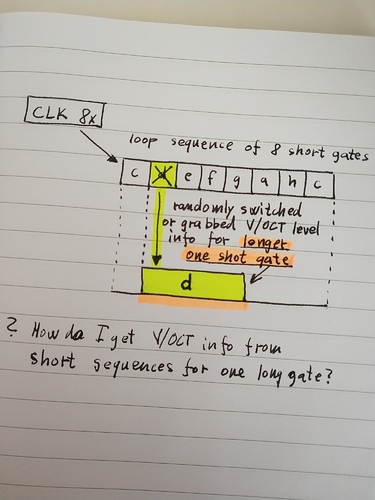 CLK 8x
loop sequence of 8 short gates
c d e f g a h c
randomly switched
or grabbed V/OCT level
info for longer
one shot gate
d
? How do I get V/OCT info from
short sequences for one long gate?